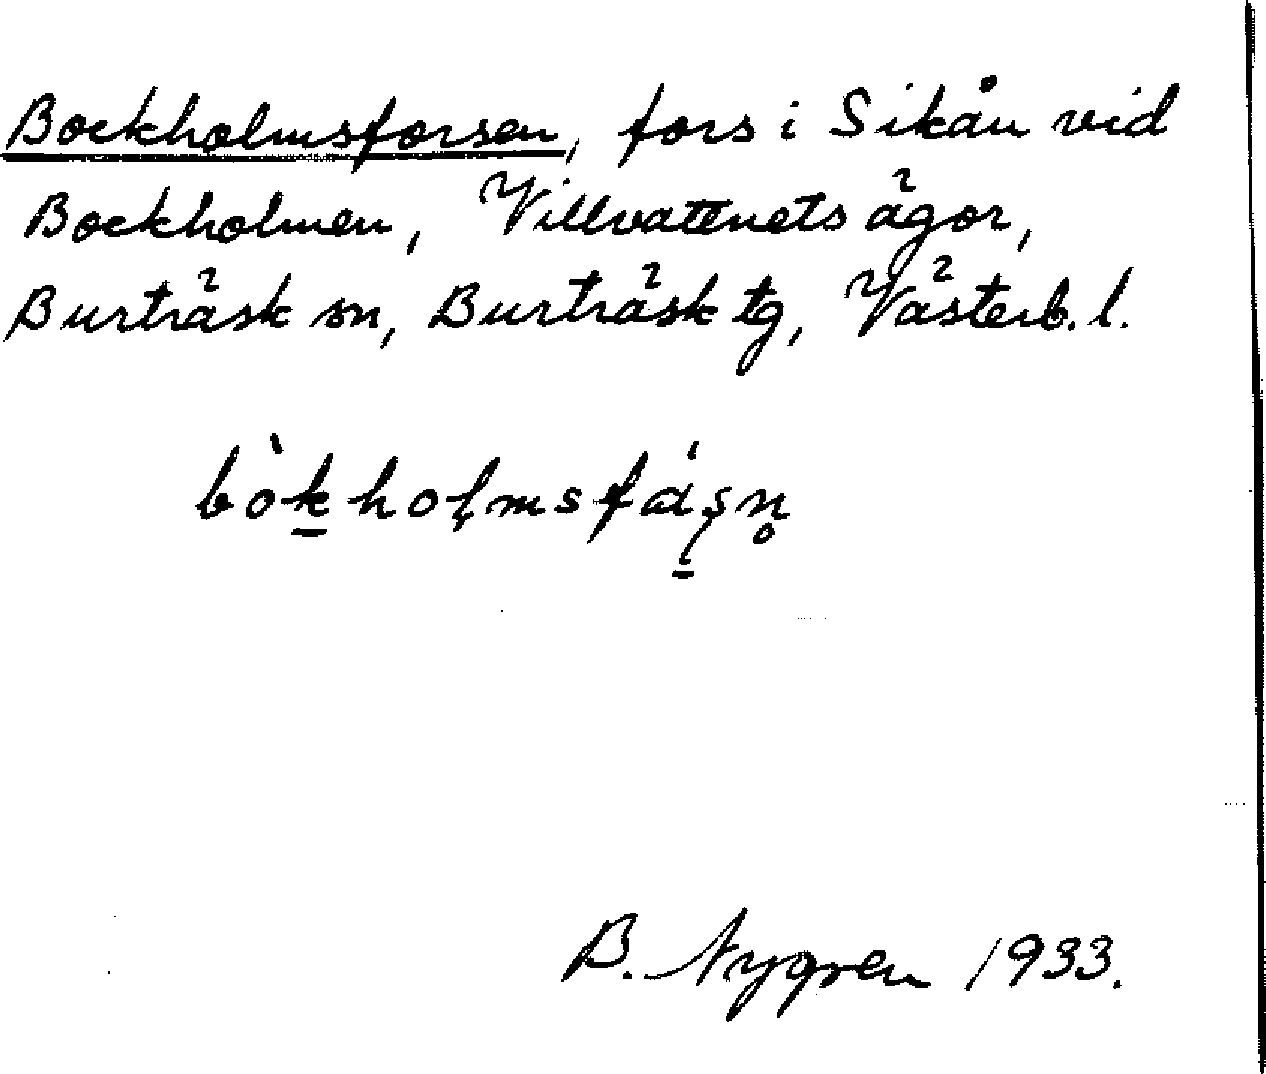 Bockholmsforsen, fors i Sikån vid
Bockholmen, Villvattnets ägor,
Burträsk sn, Burträsk tg, Västerb. l.
bòk̠holmsfáṣn̥
B. Nygren 1933.